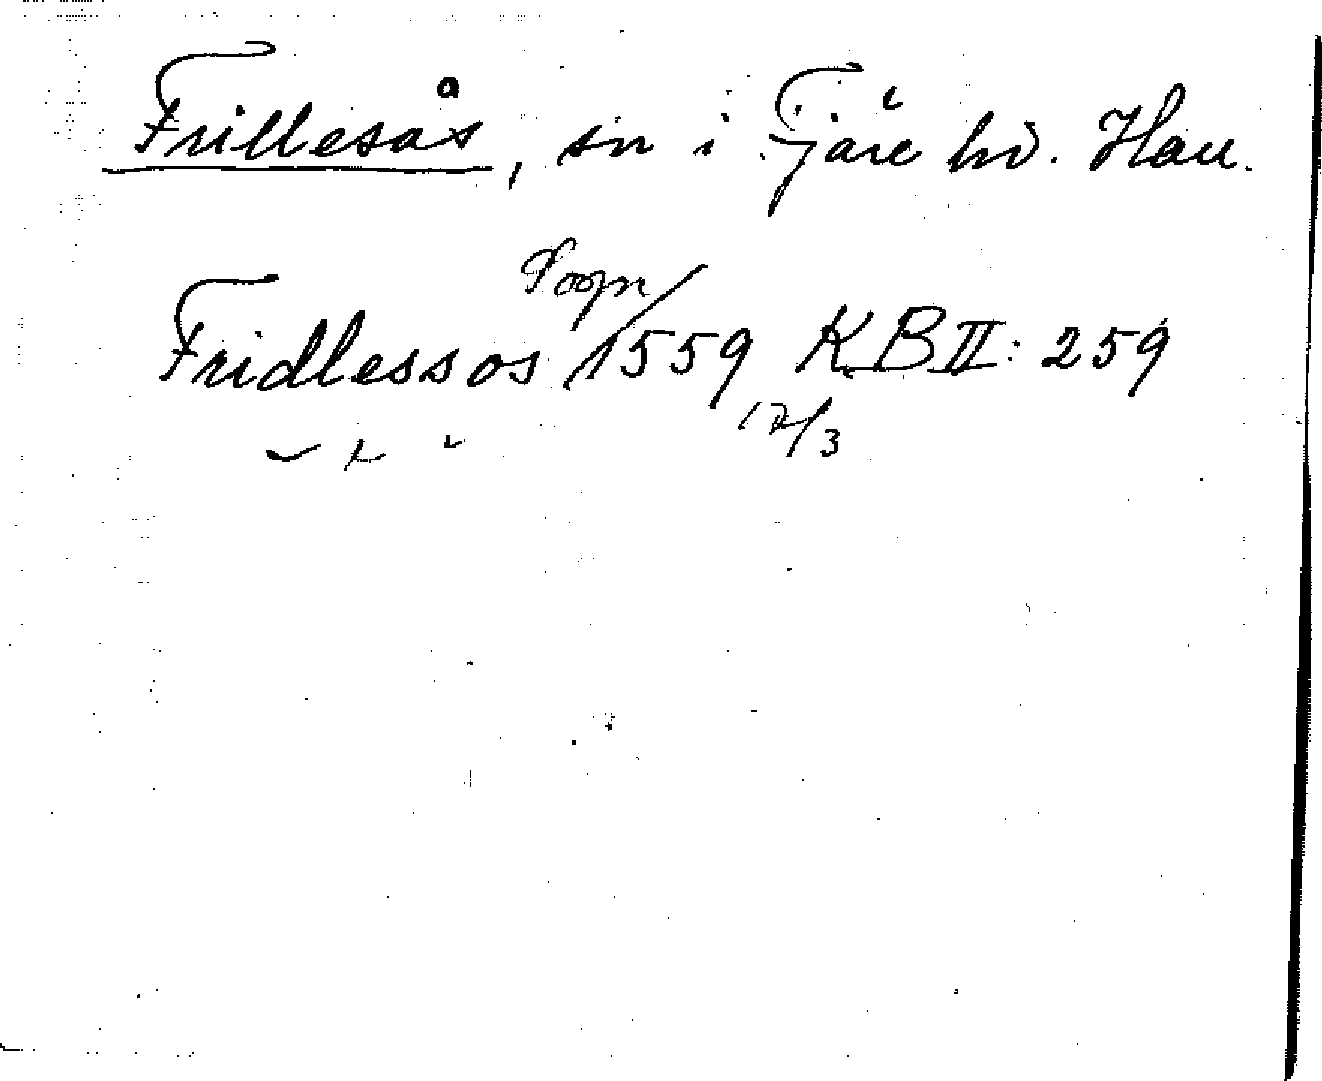 Frillesås, sn i Fjäre hd. Hall.
Sogn/
Fridlessos 1559 KB II: 259
17/3